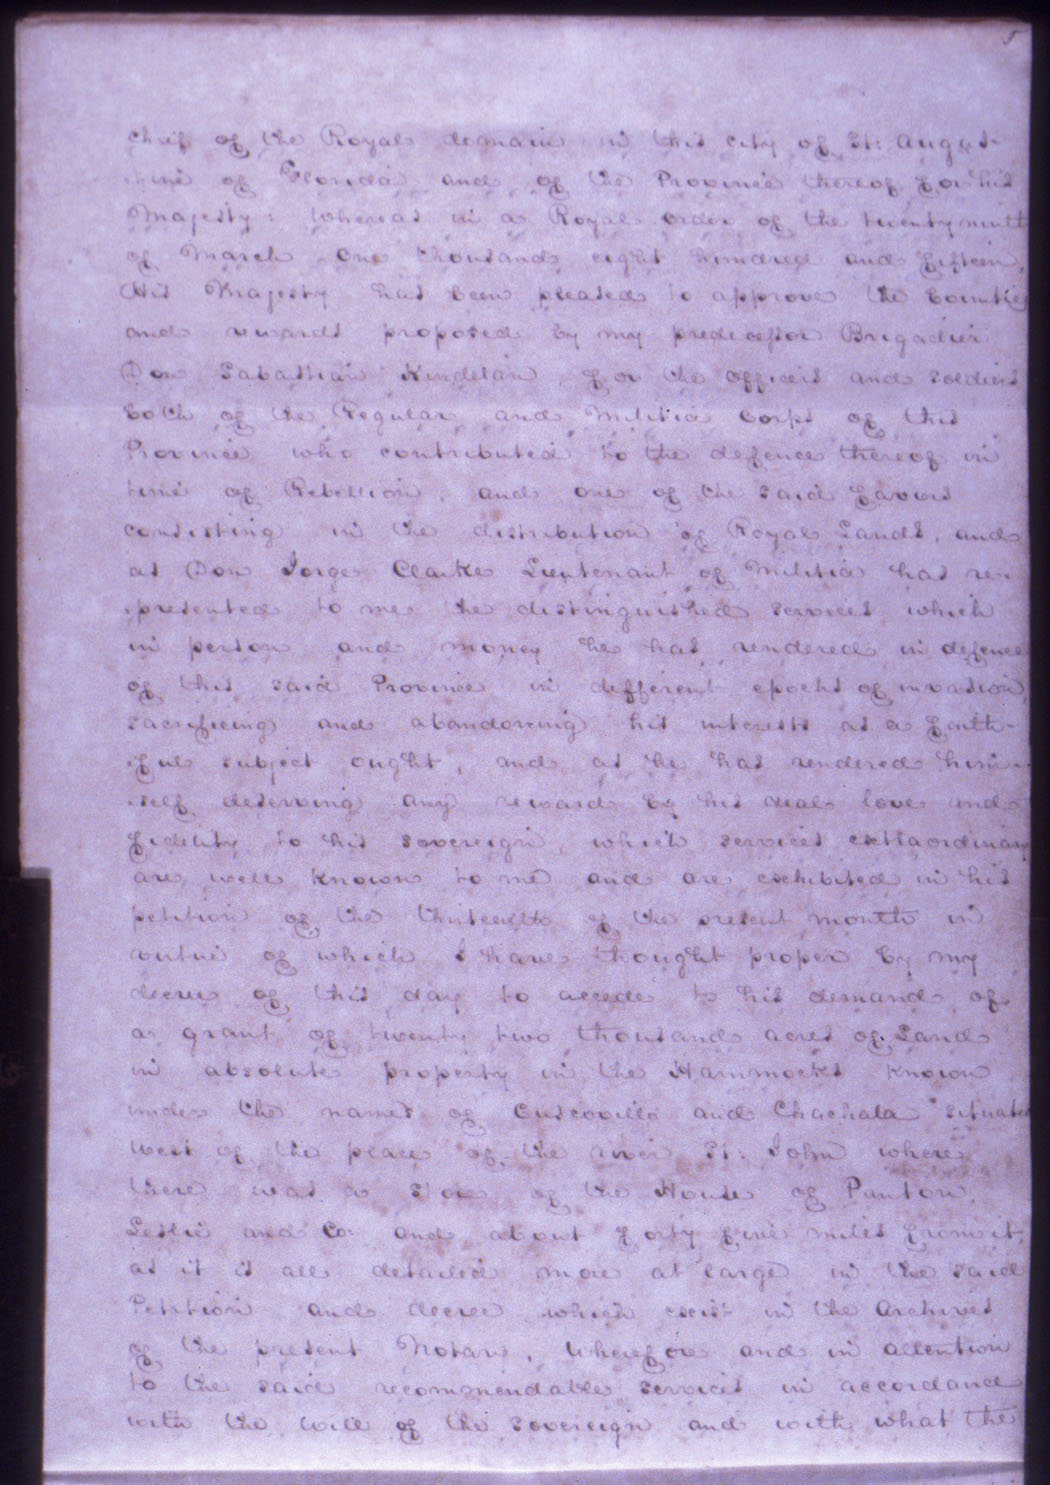 5
chief of the Royal domain in this city of St: Augus-
-tine of Florida and of the Province thereof for his
Majesty: whereas in a Royal order of the twenty ninth
of March One thousand eight hundred and fifteen,
His Majesty has been pleased to approve the bounties
and rewards proposed by my predecessor Brigadier
Don Sabastian Kindelan, for the officers and soldiers
both of the Regular and Militia Corps of this
Province who contributed to the defence thereof in
time of Rebellion, and one of the said favors
consisting in the distribution of Royal Lands, and
as Don Jorge Clarke Lieutenant of Militia has re-
-presented to me the distinguished services which
in person and money he has rendered in defence
of this said Province in different epochs of invasion,
sacrificing and abandoning his interests as a faith-
-ful subject ought, and as he has rendered him-
-self deserving any reward by his deal love and
fidelity to his sovereign, which services extraordinary
are well known to me and are exhibited in his
petition of the thirteenth of the present month in
virtue of which I have thought proper by my
decree of this day to accede to his demand of
a grant of twenty two thousand acres of Land
in absolute property in the Hammocks known
under the names of Cuscovillo and Chachala situated
west of the place of the river St: John where
there was a Store of the House of Panton,
Leslie and Co: and about forty five miles from it,
as it is all detailed more at large in the said
Petition and decree which exist in the Archives
of the present Notary, Wherefore and in attention
to the said recommendable services in accordance
with the will of the sovereign and with what the